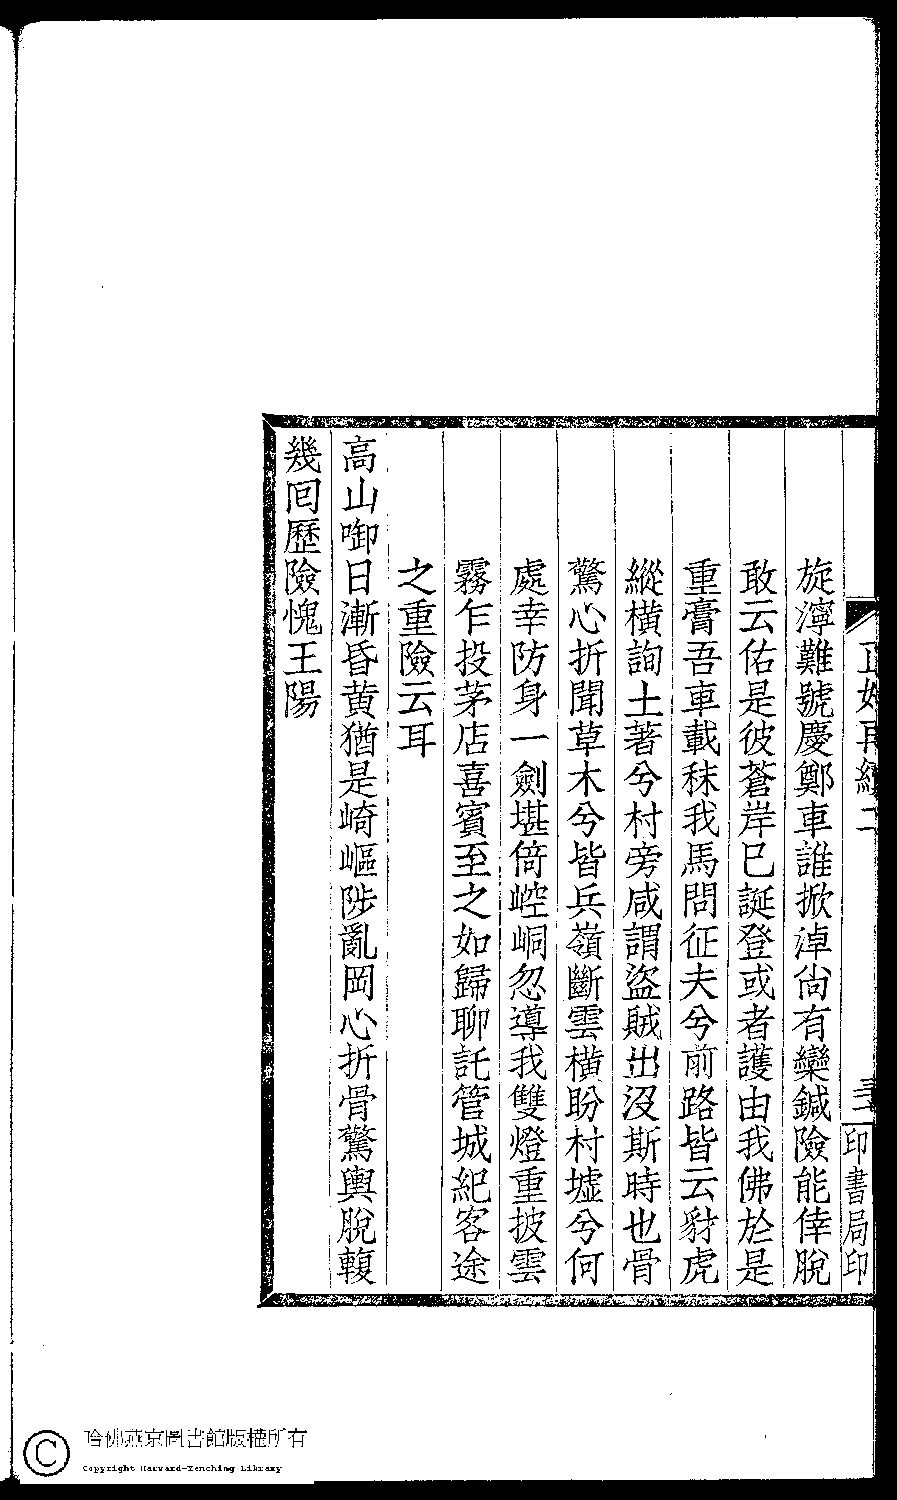 正始再續二
三十一
印書局印
旋濘難號慶鄭車誰掀淖尙有欒鍼險能倖脫
敢云佑是彼蒼岸已誕登或者護由我佛於是
重膏吾車載秣我馬問征夫兮前路皆云豺虎
縱橫詢土著兮村旁咸謂盜賊出沒斯時也骨
驚心折聞草木兮皆兵嶺斷雲橫盼村墟兮何
處幸防身一劍堪倚崆峒忽導我雙燈重披雲
霧乍投茅店喜賓至之如歸聊託管城紀客途
之重險云耳
高山啣日漸昏黄猶是崎嶇陟亂岡心折骨驚輿脫輹
幾回歷險愧王陽
哈佛燕京圖書館版權所有
Copyright Harvard-Yenching Library